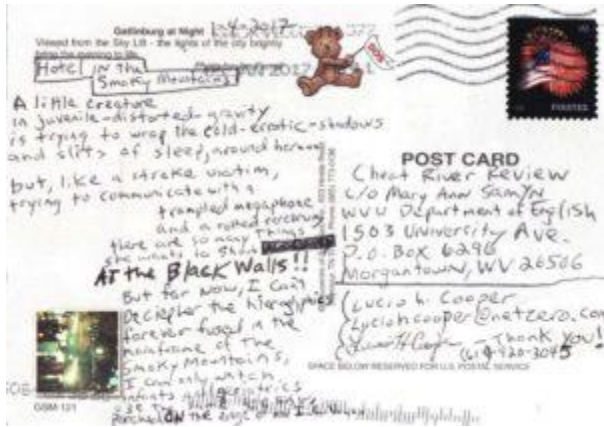 Gatlinburg at Night 1-4-2017
Viewed from the Sky Lift - the lights of the city brightly
bring the evening to life.
Hotel in the
Smoky Mountains
SOS
2017
A little creature
in juvenile-distorted-gravity
is trying to wrap the cold-erratic-shadows
and slits of sleep, around her
but, like a stroke victim,
trying to communicate with a
trampled megaphone
and a rotted
there are so many things
she wants to
At the Black Walls!!
But for now, I can't
Decipher the hieroglyphics
forever fused in the
mainframe of the
Smoky Mountains,
I can only watch
infants and geriatrics
use the same
perched ON the edge of
POST CARD
Cheat River Review
c/o Mary Ann Samyn
WVU Department of English
1503 University Ave.
P.O. Box 6296
Morgantown, WV 26506
(Lucio H. Cooper
(luciohcooper@netzero.com
Thank You!
SPACE BELOW RESERVED FOR U.S. POSTAL SERVICE
GSM-121